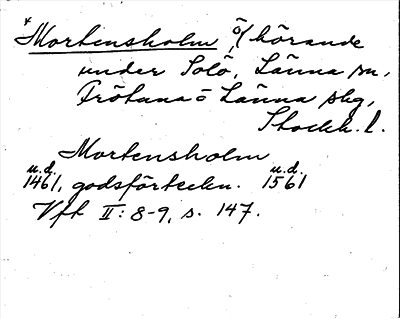 * Mortensholm ö/ hörande
under Solö, Länna sn,
Frötuna o Länna skg,
Stockh. l.
Mortensholm
u.d. u.d.
1461, godsförteckn. 1561
Vfk II: 8-9, s. 147.